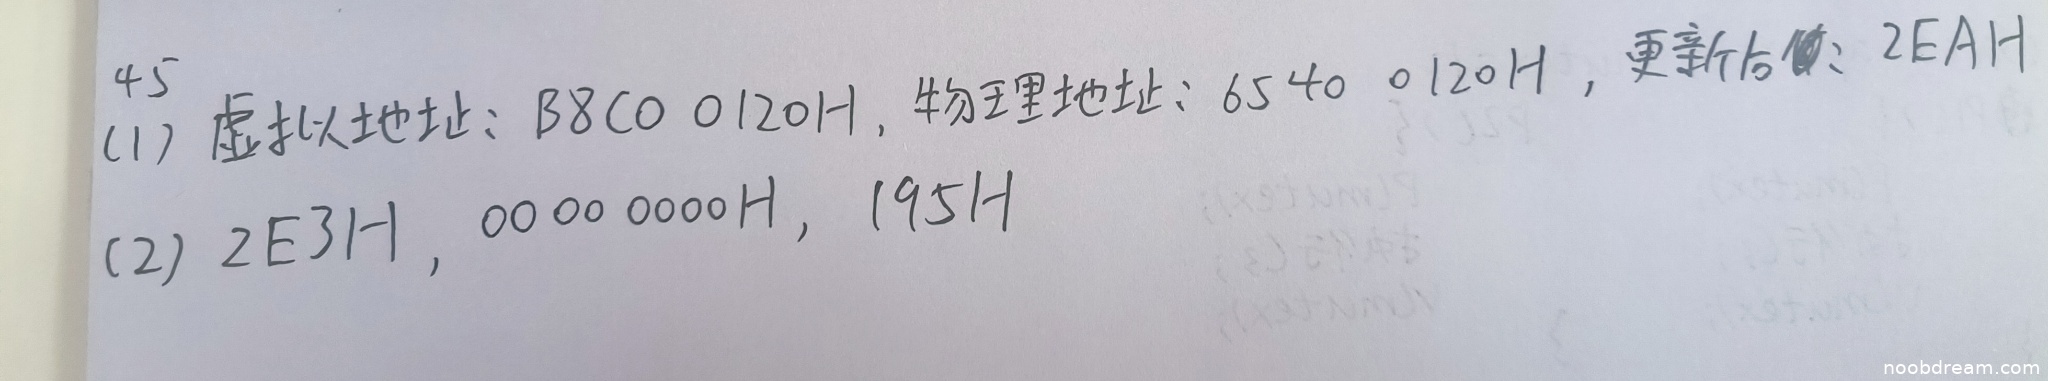 45
(1) 虚拟地址: B8C0 0120H, 物理地址: 6540 0120H, 更新后值: 2EAH
(2) 2E3H, 0000 0000H, 195H
noobdream.com